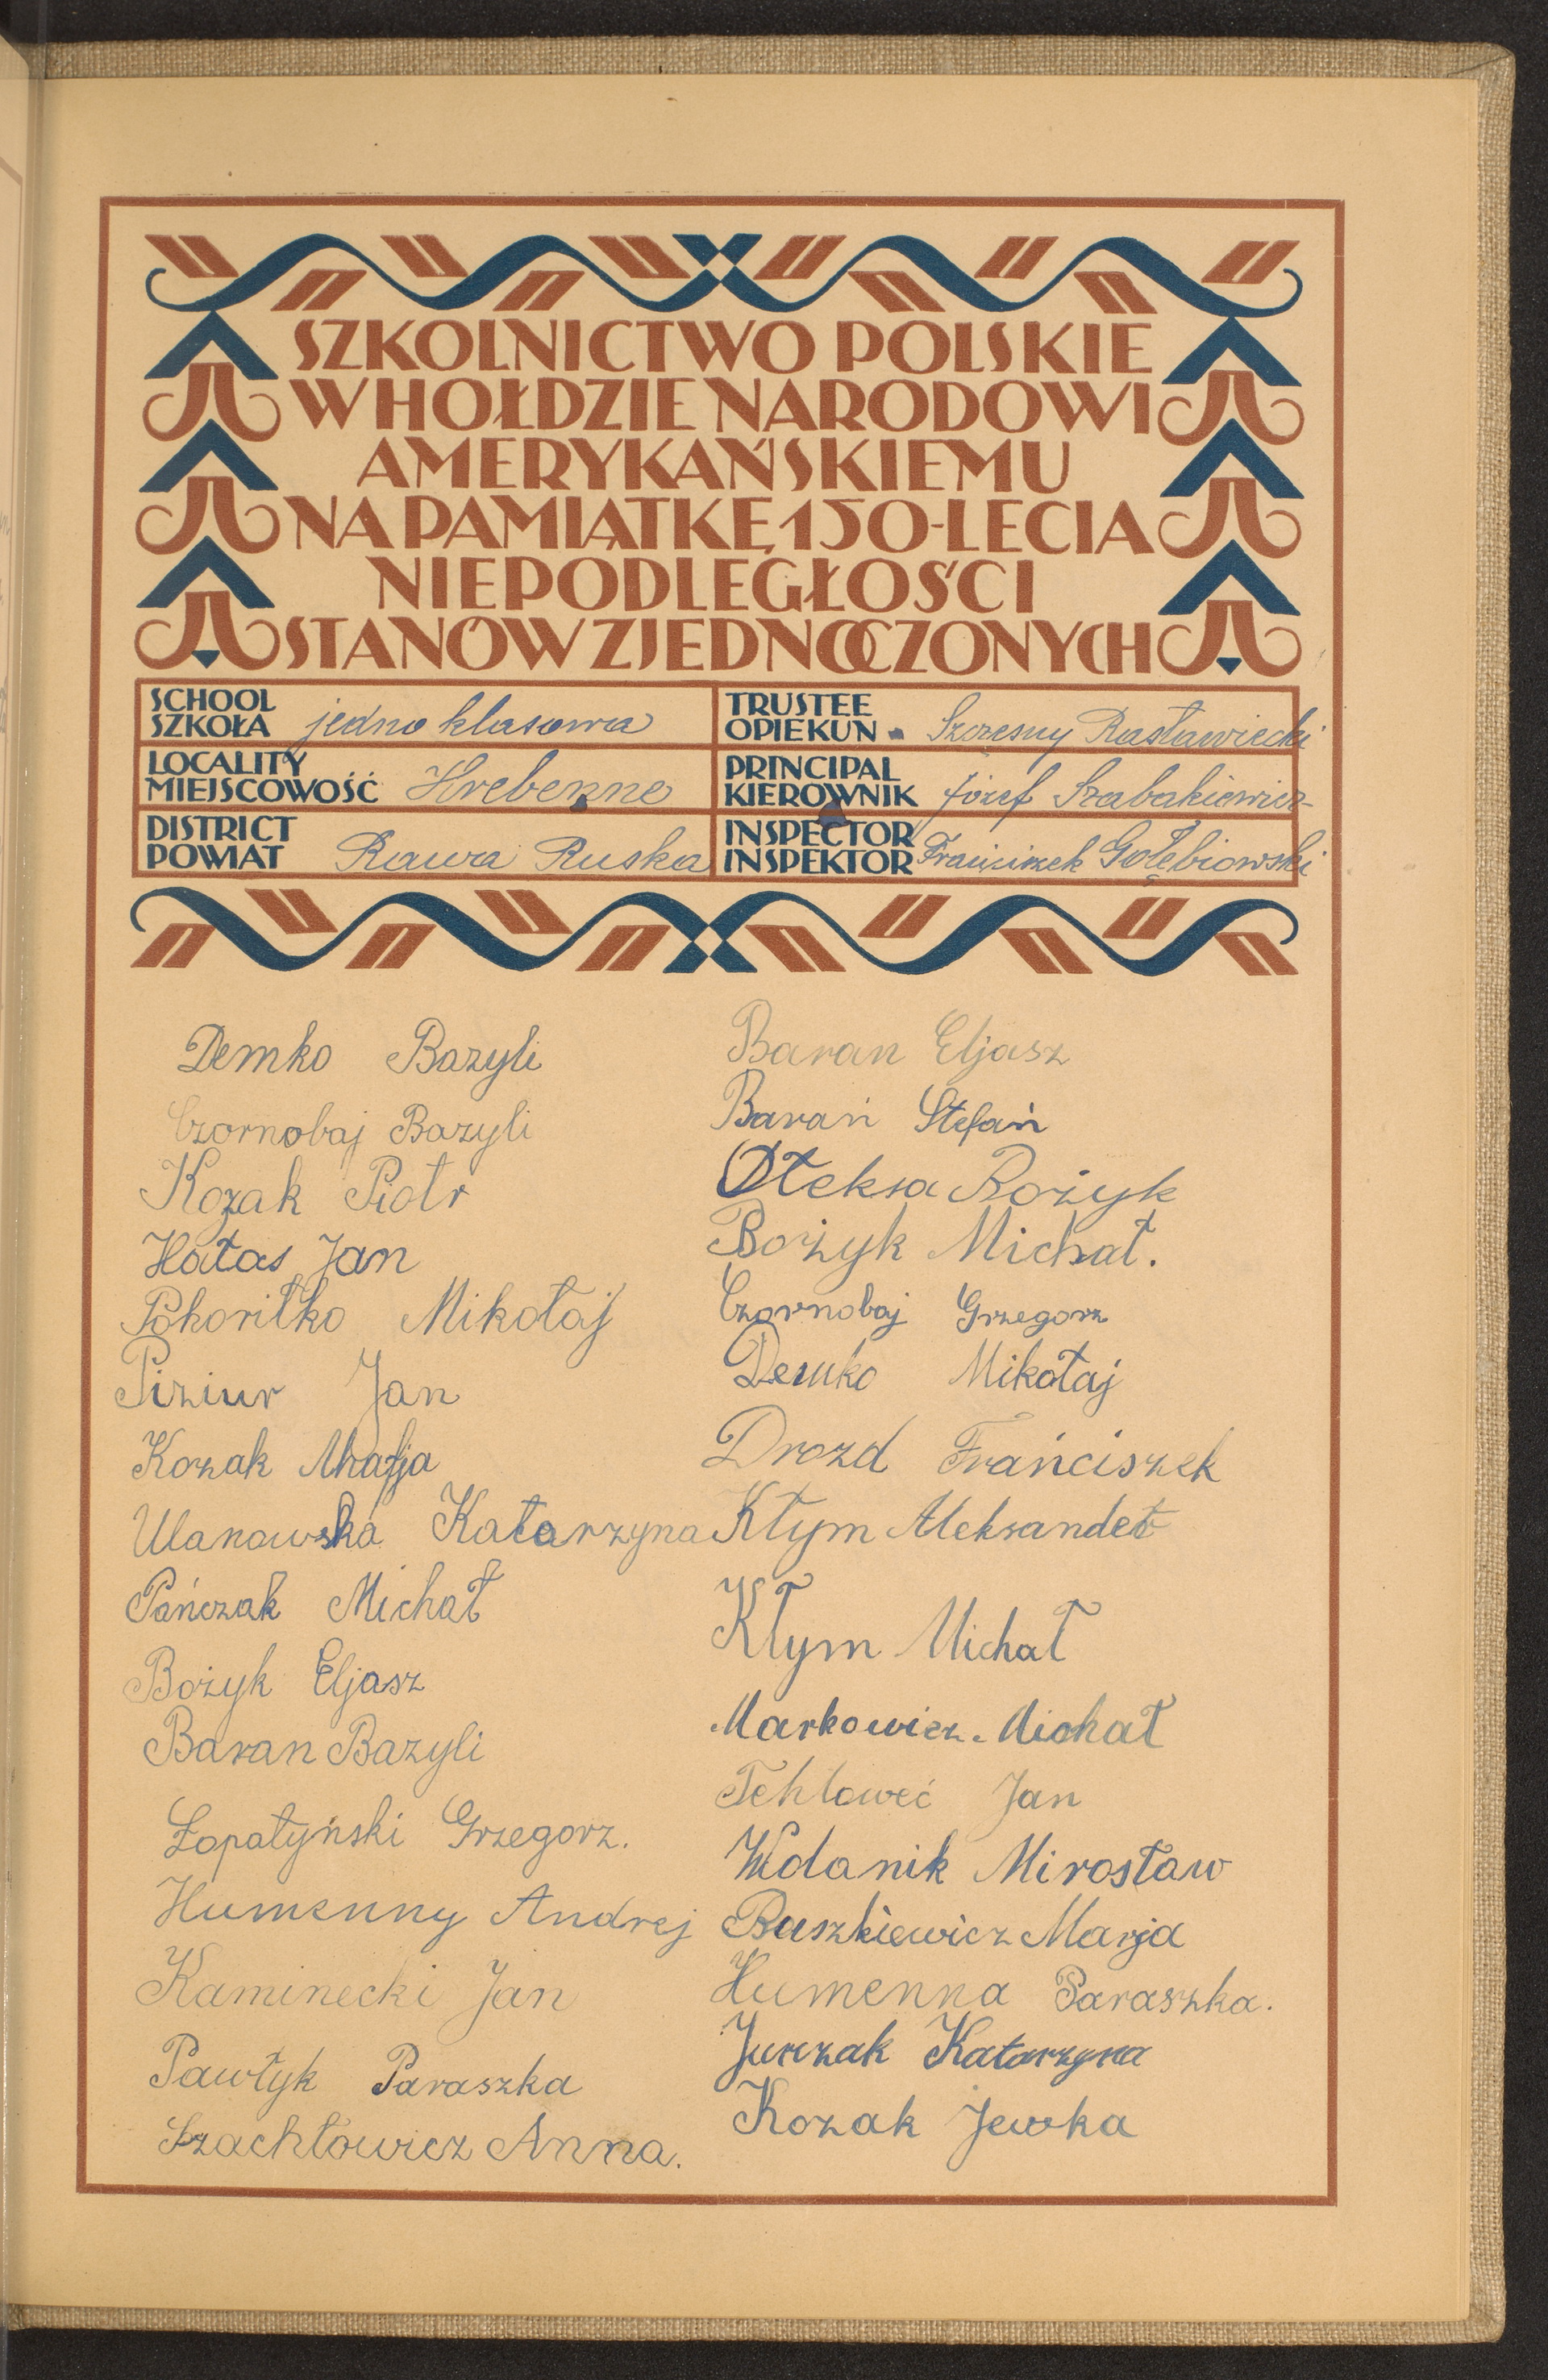 SZKOLNICTWO POLSKIE
W HOŁDZIE NARODOWI
AMERYKAŃSKIEMU
NA PAMIĄTKĘ 150-LECIA
NIEPODLEGŁOŚCI
STANÓW ZJEDNOCZONYCH
SCHOOL
SZKOŁA jedno klasowa
TRUSTEE
OPIEKUN - Szczesny Rastawiecki
LOCALITY
MIEJSCOWOŚĆ Hrebenne
PRINCIPAL
KIEROWNIK Józef Szabakiewicz
DISTRICT
POWIAT Rawa Ruska
INSPECTOR
INSPEKTOR Franciszek Gołębiowski
Demko Bazyli
Czornobaj Bazyli
Kozak Piotr
Hałas Jan
Pokoriłko Mikołaj
Piziur Jan
Kozak Ahafja
Ulanowska Katarzyna
Pańczak Michał
Bożyk Eljasz
Baran Bazyli
Łopatyński Grzegorz.
Humenny Andrej
Kaminecki Jan
Pawłyk Paraszka
Szachłowicz Anna.
Baran Eljasz
Barań Stefań
Ołeksa Bożyk
Bożyk Michał.
Czornobaj Grzegorz
Demko Mikołaj
Drozd Frańciszek
Kłym Aleksander
Kłym Michał
Markowicz Michał
Tehloweć Jan
Wdanik Mirosław
Baszkiewicz Marja
Humenna Paraszka.
Jurczak Katarzyna
Kozak Jewka